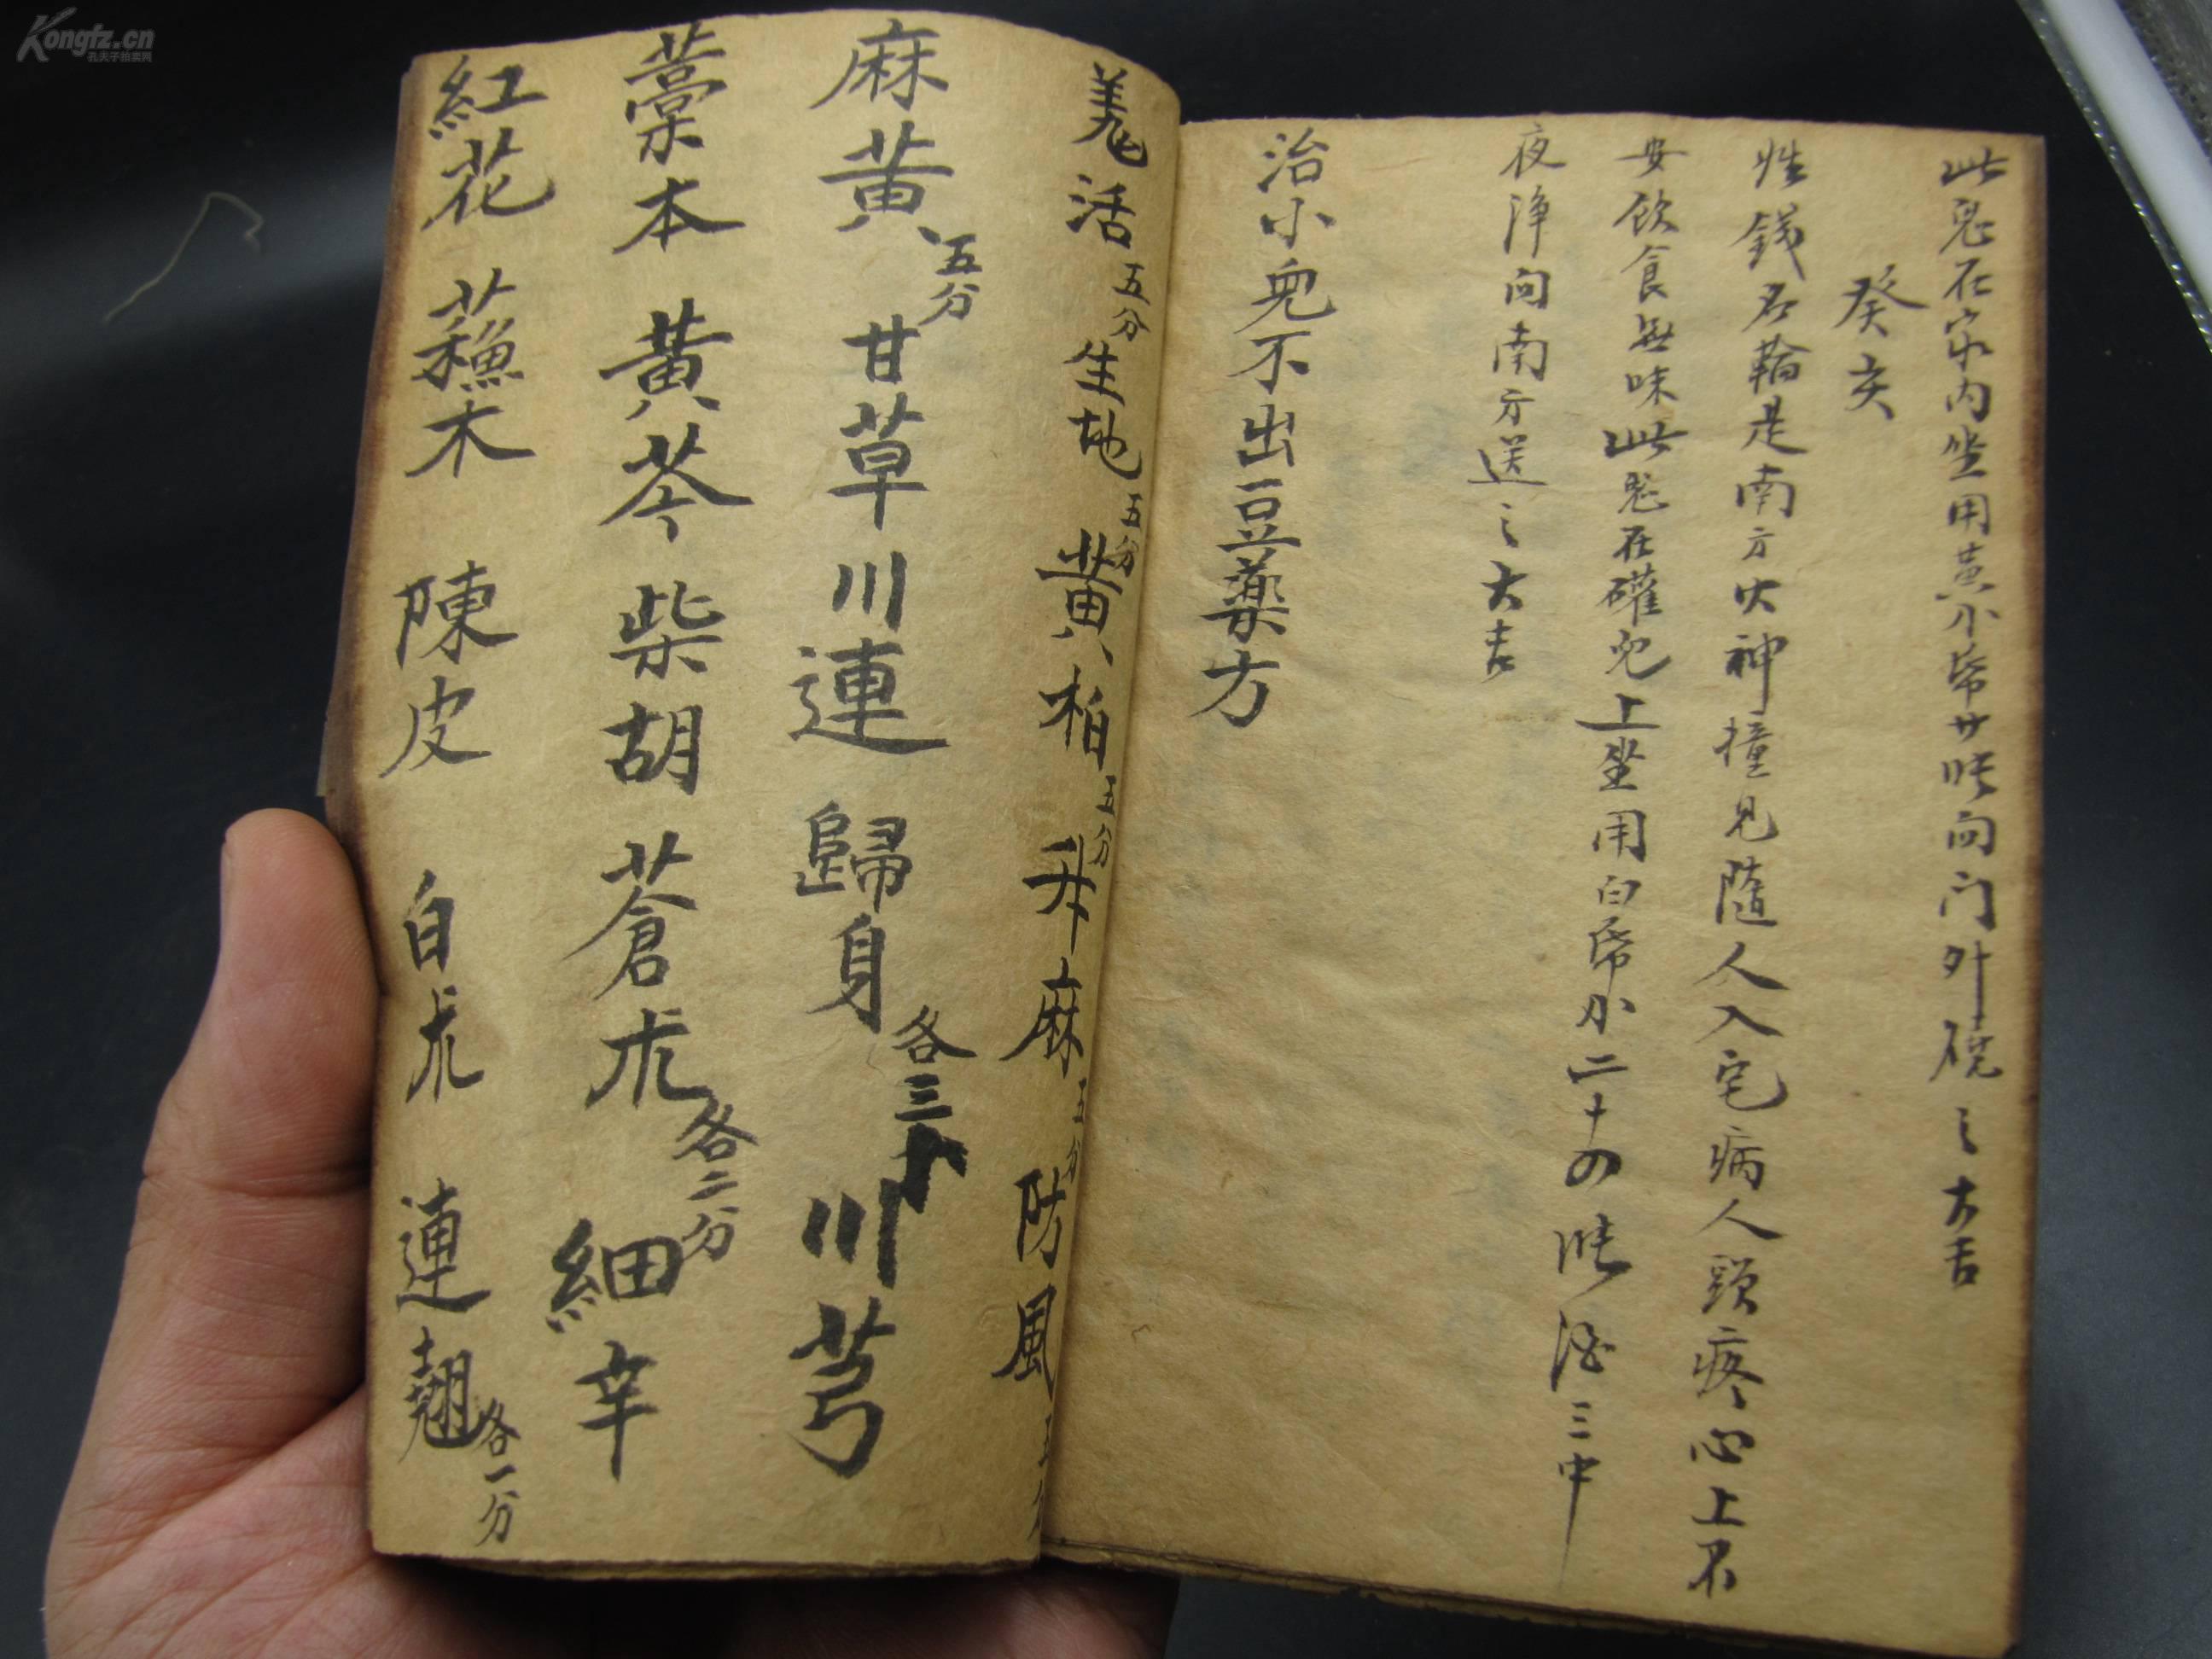 此鬼在家内坐用黄小帋廿張向门外燒之大吉
癸亥
姓錢名輪是南方火神撞見隨人入宅病人頭疼心上不
安飲食無味此鬼在礶兒上坐用白帋小二十四張酒三中
夜净向南方送之大吉
治小兒不出豆藥方
羗活五分 生地五分 黄柏五分 升麻五分 防風五分
麻黄五分 甘草 川連 歸身各三分 川芎
藁本 黄芩 柴胡 蒼朮各二分 細辛
紅花 蘓木 陳皮 白朮 連翹各一分
Kongfz.cn
孔夫子拍卖网